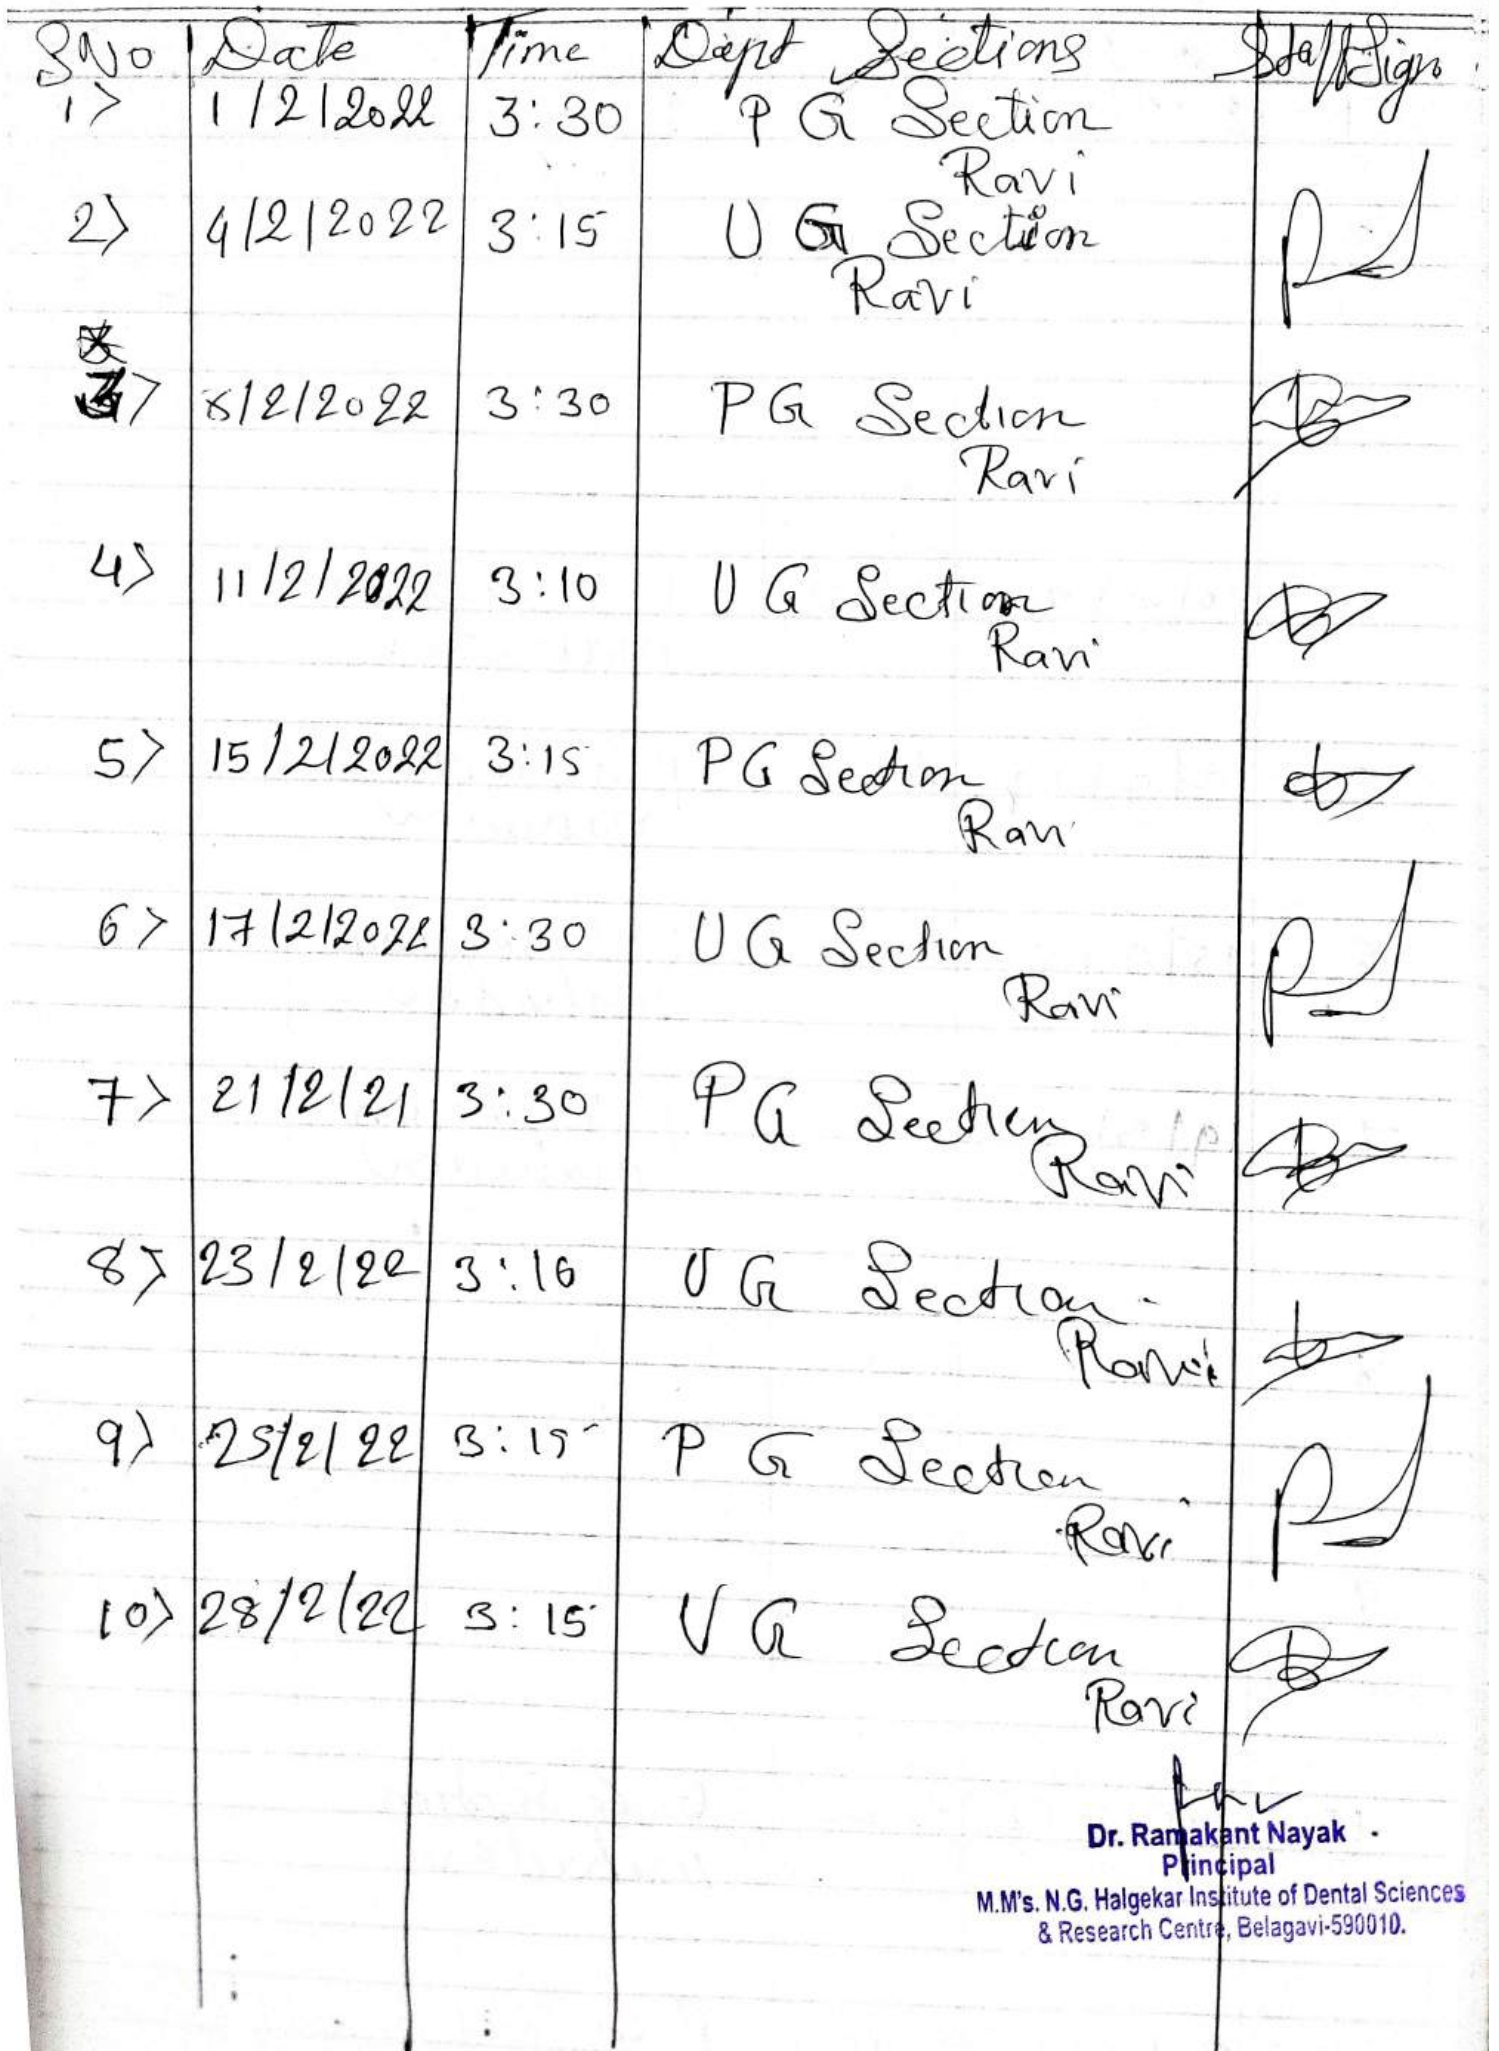 SNo Date Time Dept Sections Staff Sign
1> 1/2/2022 3:30 P G Section
Ravi
2> 4/2/2022 3:15 U G Section
Ravi
3> 8/2/2022 3:30 PG Section
Ravi
4> 11/2/2022 3:10 U G Section
Ravi
5> 15/2/2022 3:15 PG Section
Ravi
6> 17/2/2022 3:30 U G Section
Ravi
7> 21/2/21 3:30 P G Section
Ravi
8> 23/2/22 3:10 U G Section
Ravi
9> 25/2/22 3:15 P G Section
Ravi
10> 28/2/22 3:15 U G Section
Ravi
Dr. Ramakant Nayak
Principal
M.M's. N.G. Halgekar Institute of Dental Sciences
& Research Centre, Belagavi-590010.